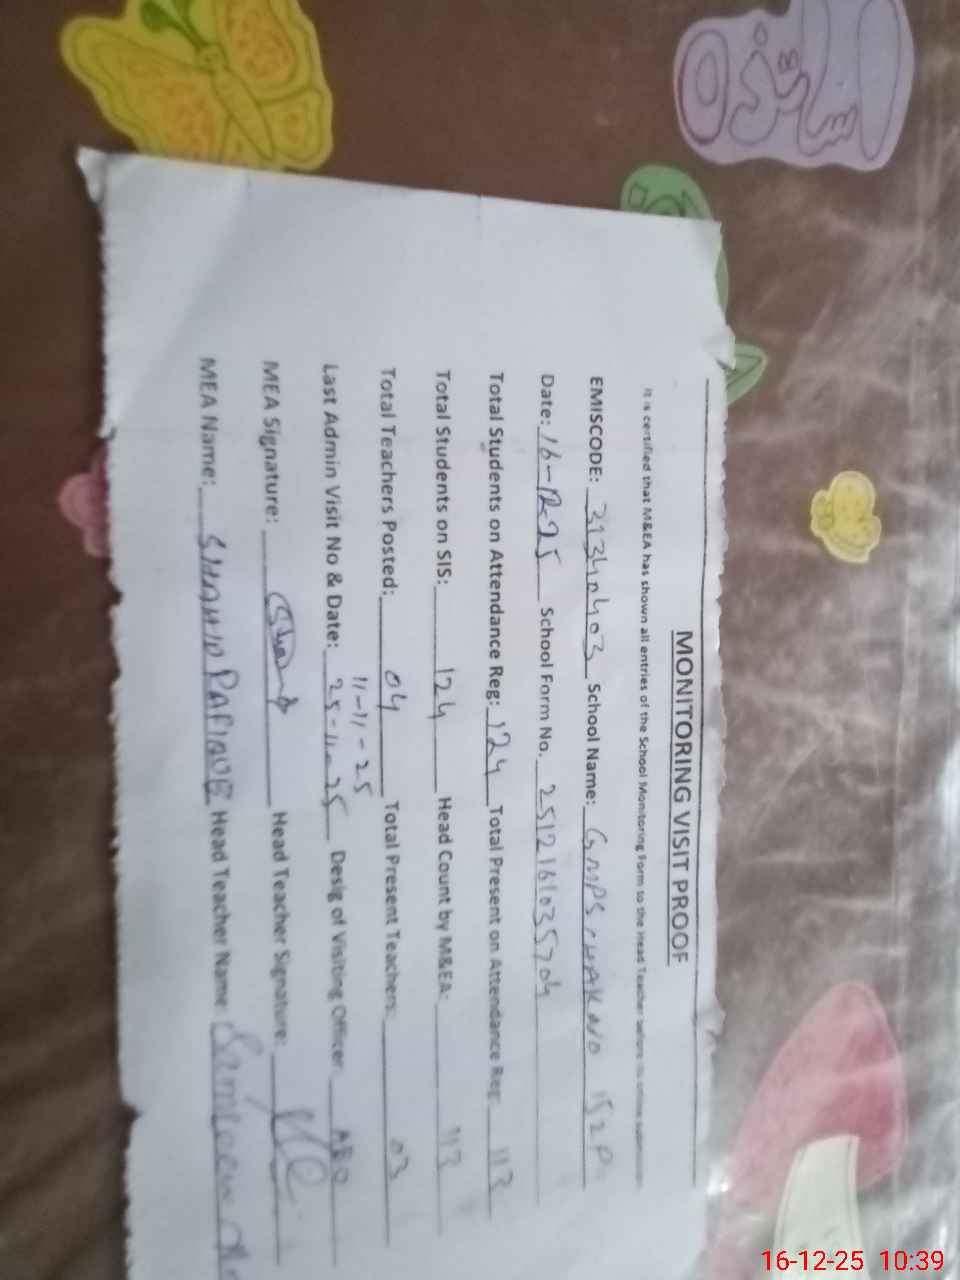 MONITORING VISIT PROOF
It is certified that M&EA has shown all entries of the School Monitoring Form to the Head Teacher before its online submission
EMISCODE: 31340403 School Name: GMPS CHAK NO 152P
Date: 16-12-25 School Form No. 2512161035704
Total Students on Attendance Reg: 124 Total Present on Attendance Reg: 113
Total Students on SIS: 124 Head Count by M&EA: 113
Total Teachers Posted: 04 Total Present Teachers: 03
11-11-25
Last Admin Visit No & Date: 25-11-25 Desig of Visiting Officer
MEA Signature: Head Teacher Signature:
MEA Name: SHAHID RAFIQUE Head Teacher Name:
16-12-25 10:39